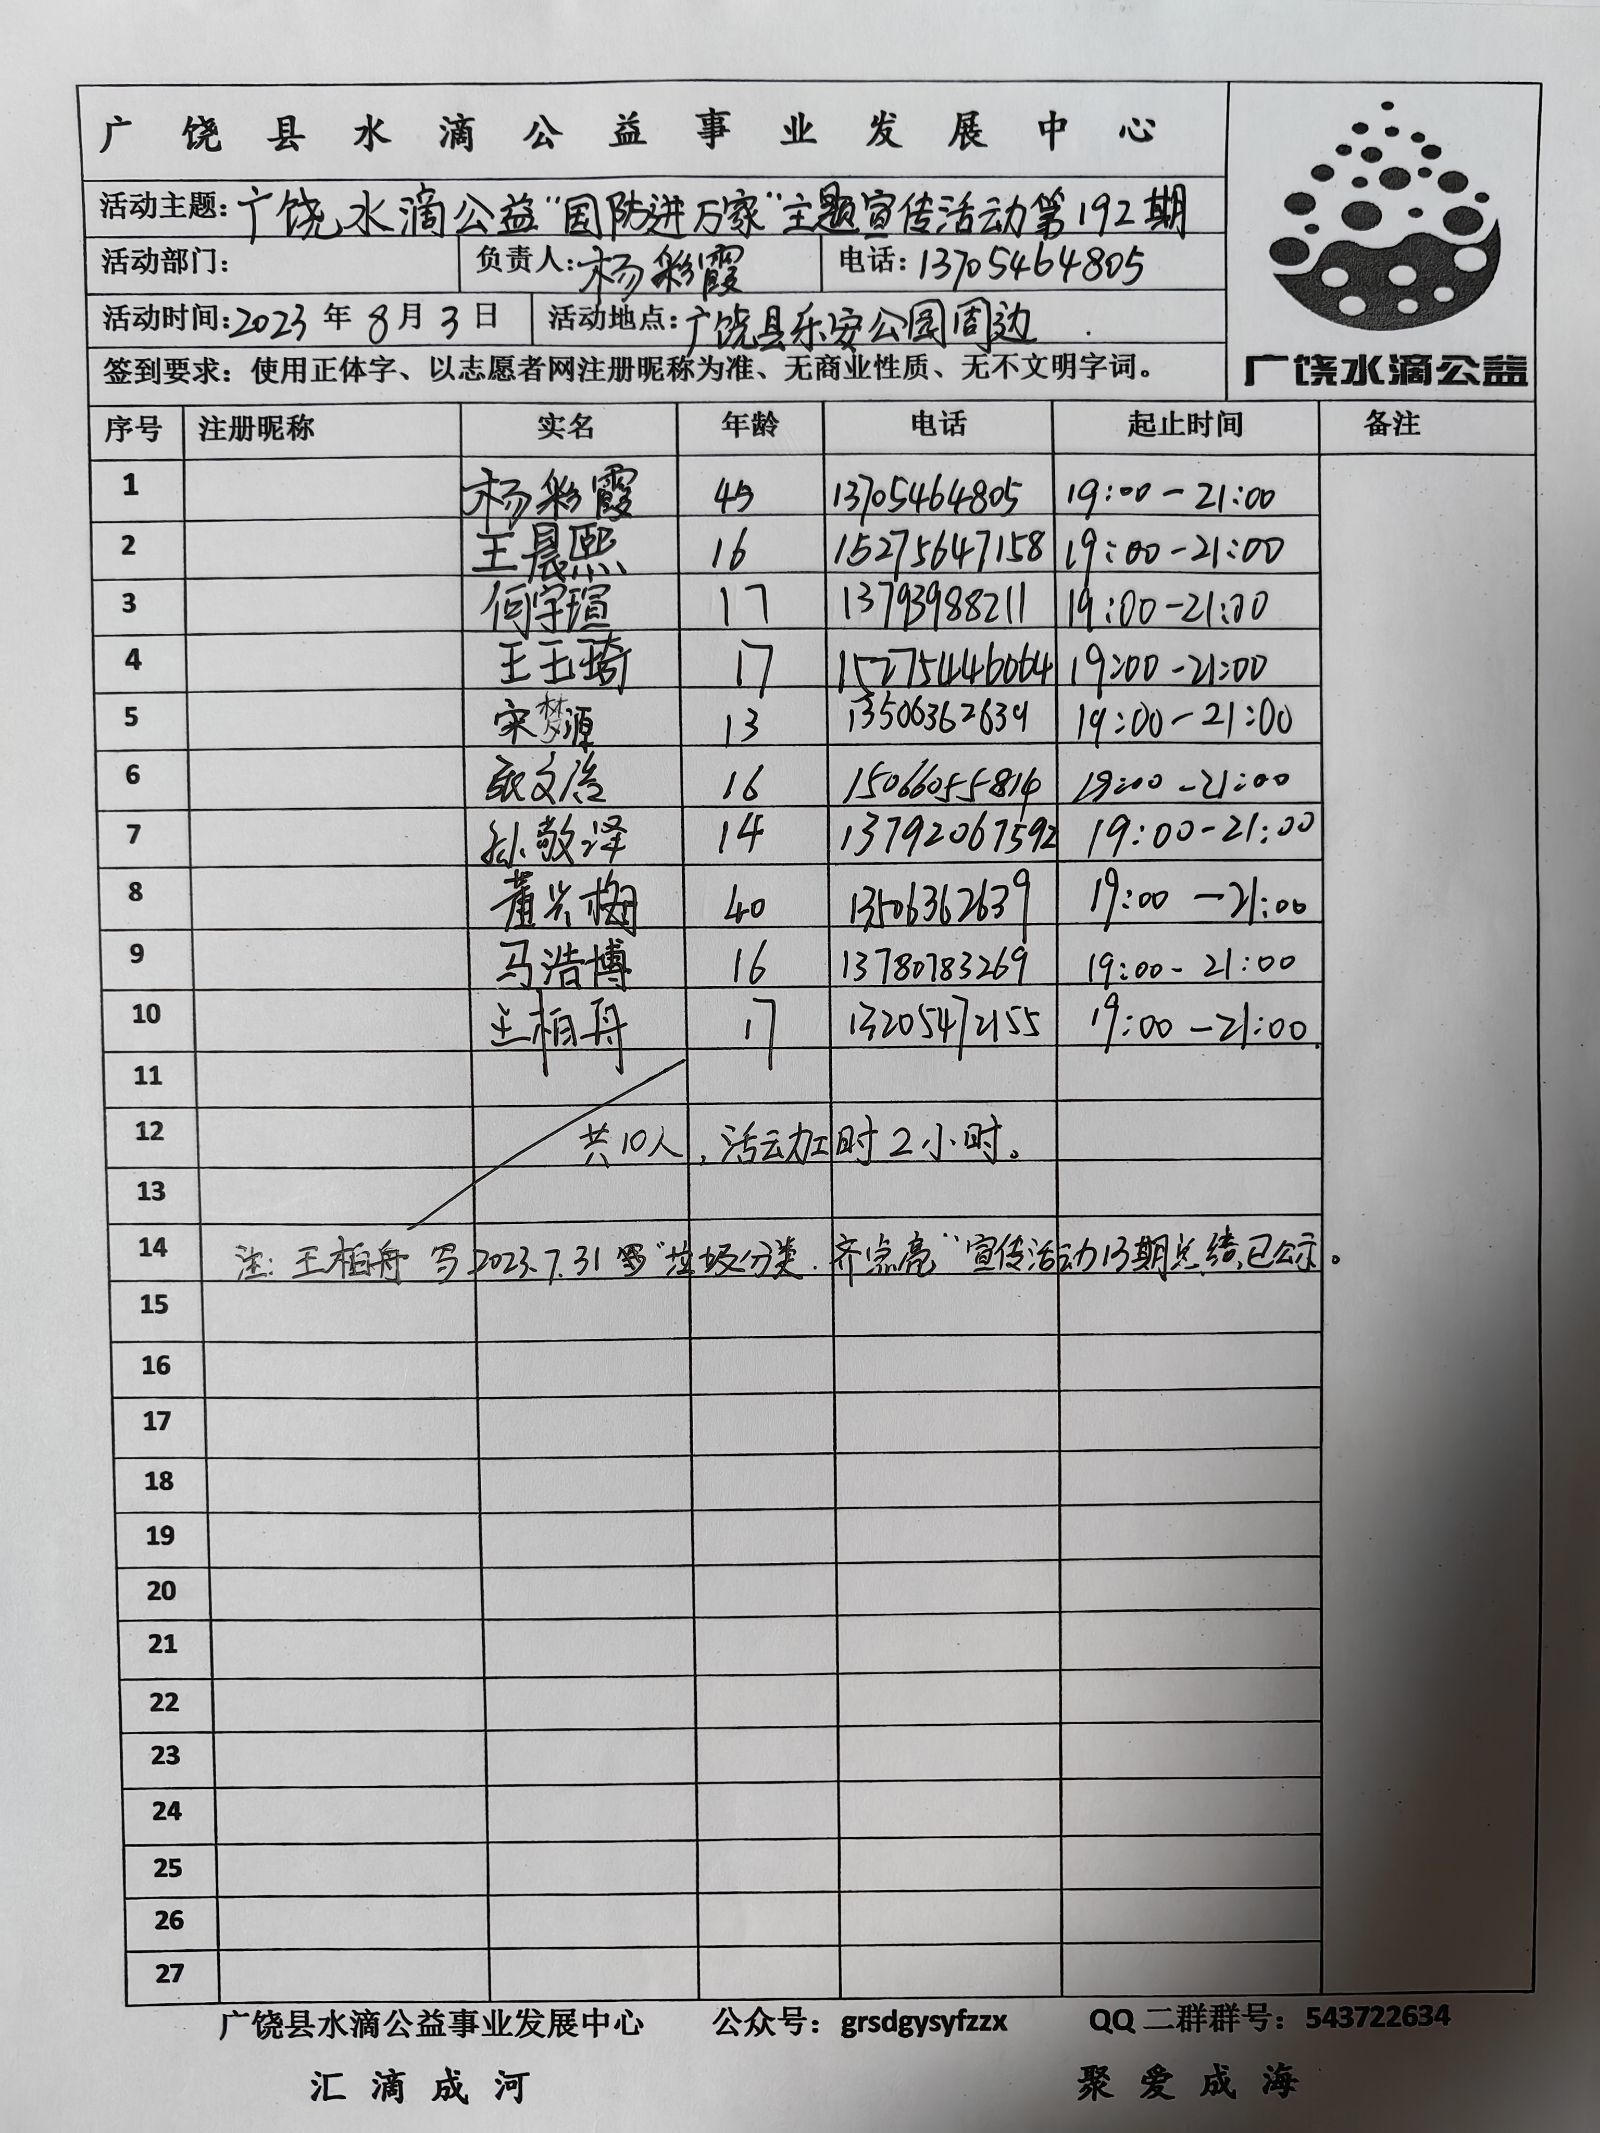 广饶县水滴公益事业发展中心
活动主题:广饶水滴公益“国防进万家”主题宣传活动第192期
活动部门: 负责人:杨彩霞 电话:13705464805
活动时间:2023年8月3日 活动地点:广饶县乐安公园周边
签到要求:使用正体字、以志愿者网注册昵称为准、无商业性质、无不文明字词。
广饶水滴公益
序号 注册昵称 实名 年龄 电话 起止时间 备注
1 杨彩霞 45 13705464805 19:00-21:00
2 王晨熙 16 15275647158 19:00-21:00
3 何宇瑄 17 13793988211 19:00-21:00
4 王玉琦 17 19:00-21:00
5 宋梦源 13 13506362639 19:00-21:00
6 16 15066055816 19:00-21:00
7 孙敬泽 14 13792067592 19:00-21:00
8 董兴梅 40 13506362639 19:00-21:00
9 马浩博 16 13780783269 19:00-21:00
10 王柏舟 17 13205472155 19:00-21:00
11
12 共10人,活动工时2小时。
13
14 注:王柏舟 写2023.7.31 “垃圾分类.齐点亮”宣传活动13期总结,已公示。
15
16
17
18
19
20
21
22
23
24
25
26
27
广饶县水滴公益事业发展中心 公众号:grsdgysyfzzx QQ二群群号:543722634
汇滴成河 聚爱成海